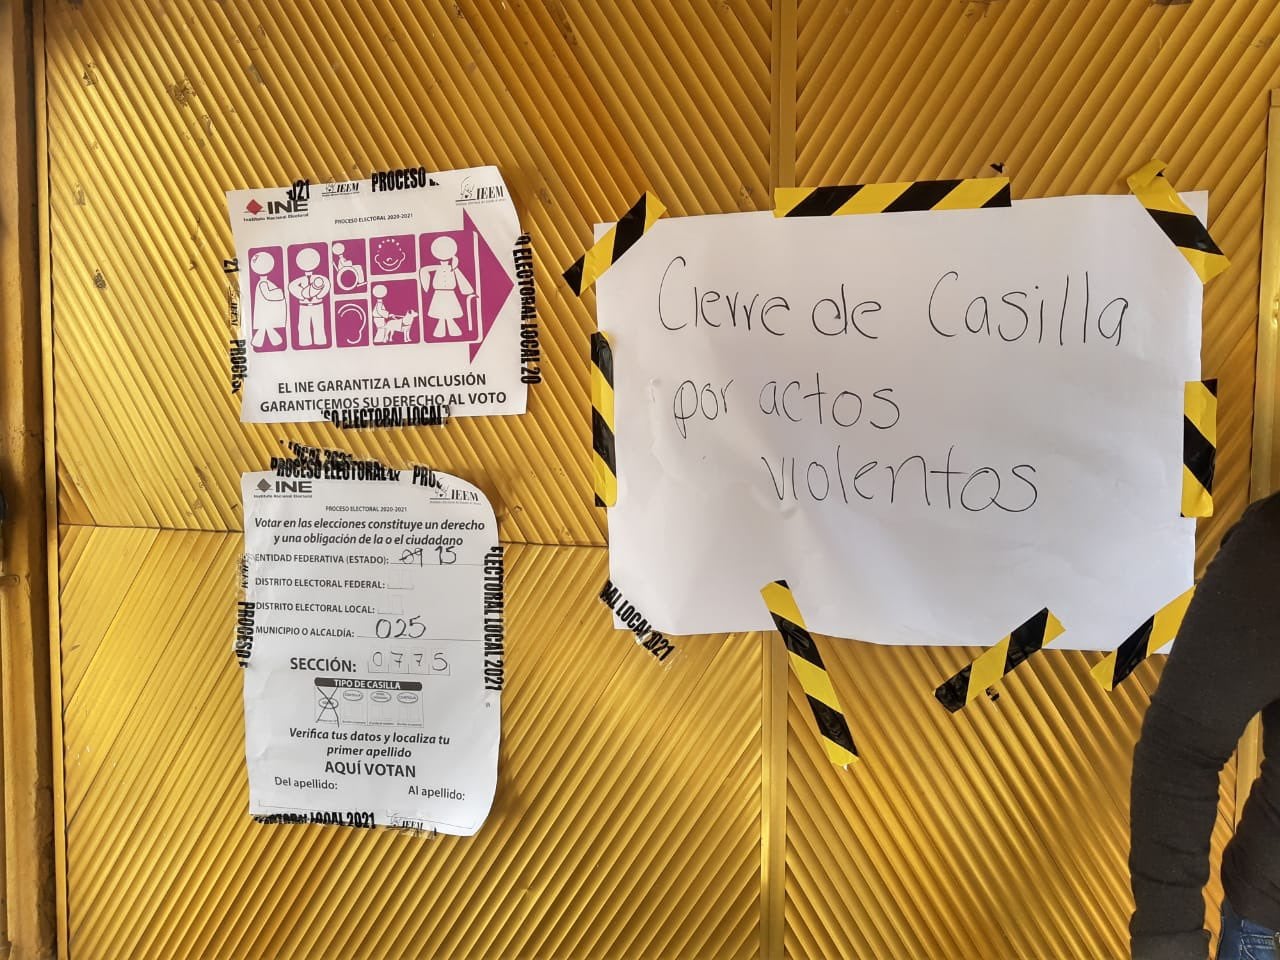 INE
Instituto Nacional Electoral
IEEM
PROCESO
IEEM
PROCESO ELECTORAL 2020-2021
EL INE GARANTIZA LA INCLUSIÓN
GARANTICEMOS SU DERECHO AL VOTO
ELECTORAL LOCAL 20
PROCES
SO ELECTORAL LOCAL
LOCAL 2021
PROCESO ELECTORAL
INE
Instituto Nacional Electoral
IEEM
PROCESO ELECTORAL 2020-2021
Votar en las elecciones constituye un derecho
y una obligación de la o el ciudadano
ENTIDAD FEDERATIVA (ESTADO): 15
DISTRITO ELECTORAL FEDERAL:
DISTRITO ELECTORAL LOCAL:
MUNICIPIO O ALCALDÍA: 025
SECCIÓN: 0775
TIPO DE CASILLA
Verifica tus datos y localiza tu
primer apellido
AQUÍ VOTAN
Del apellido: Al apellido:
ELECTORAL LOCAL 2021
PROCESO
LOCAL 2021
IEEM
Cierre de Casilla
por actos
violentos
AL LOCAL 2021